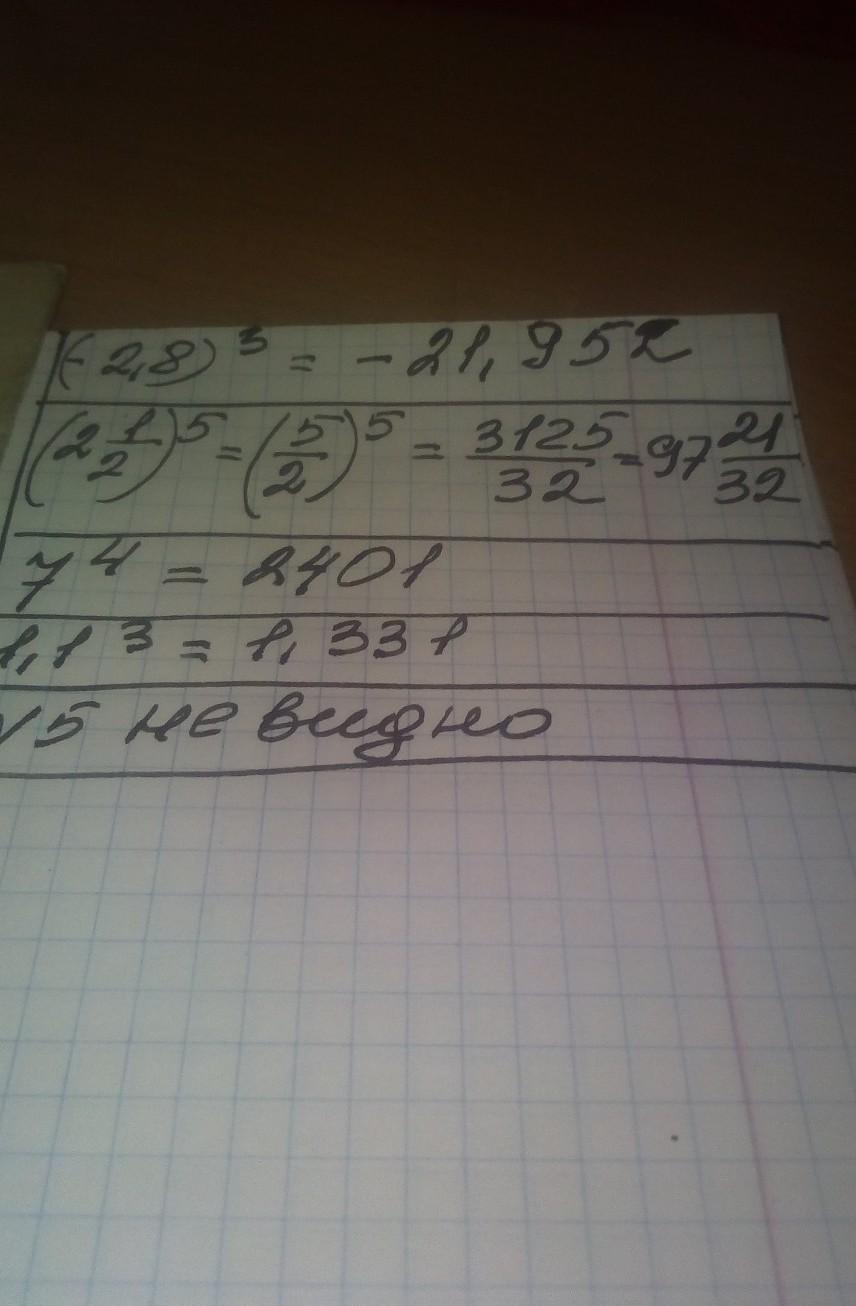 (-2,8)³ = -21,952
(2 1/2)⁵ = (5/2)⁵ = 3125/32 = 97 21/32
7⁴ = 2401
1,1³ = 1,331
√5 не видно